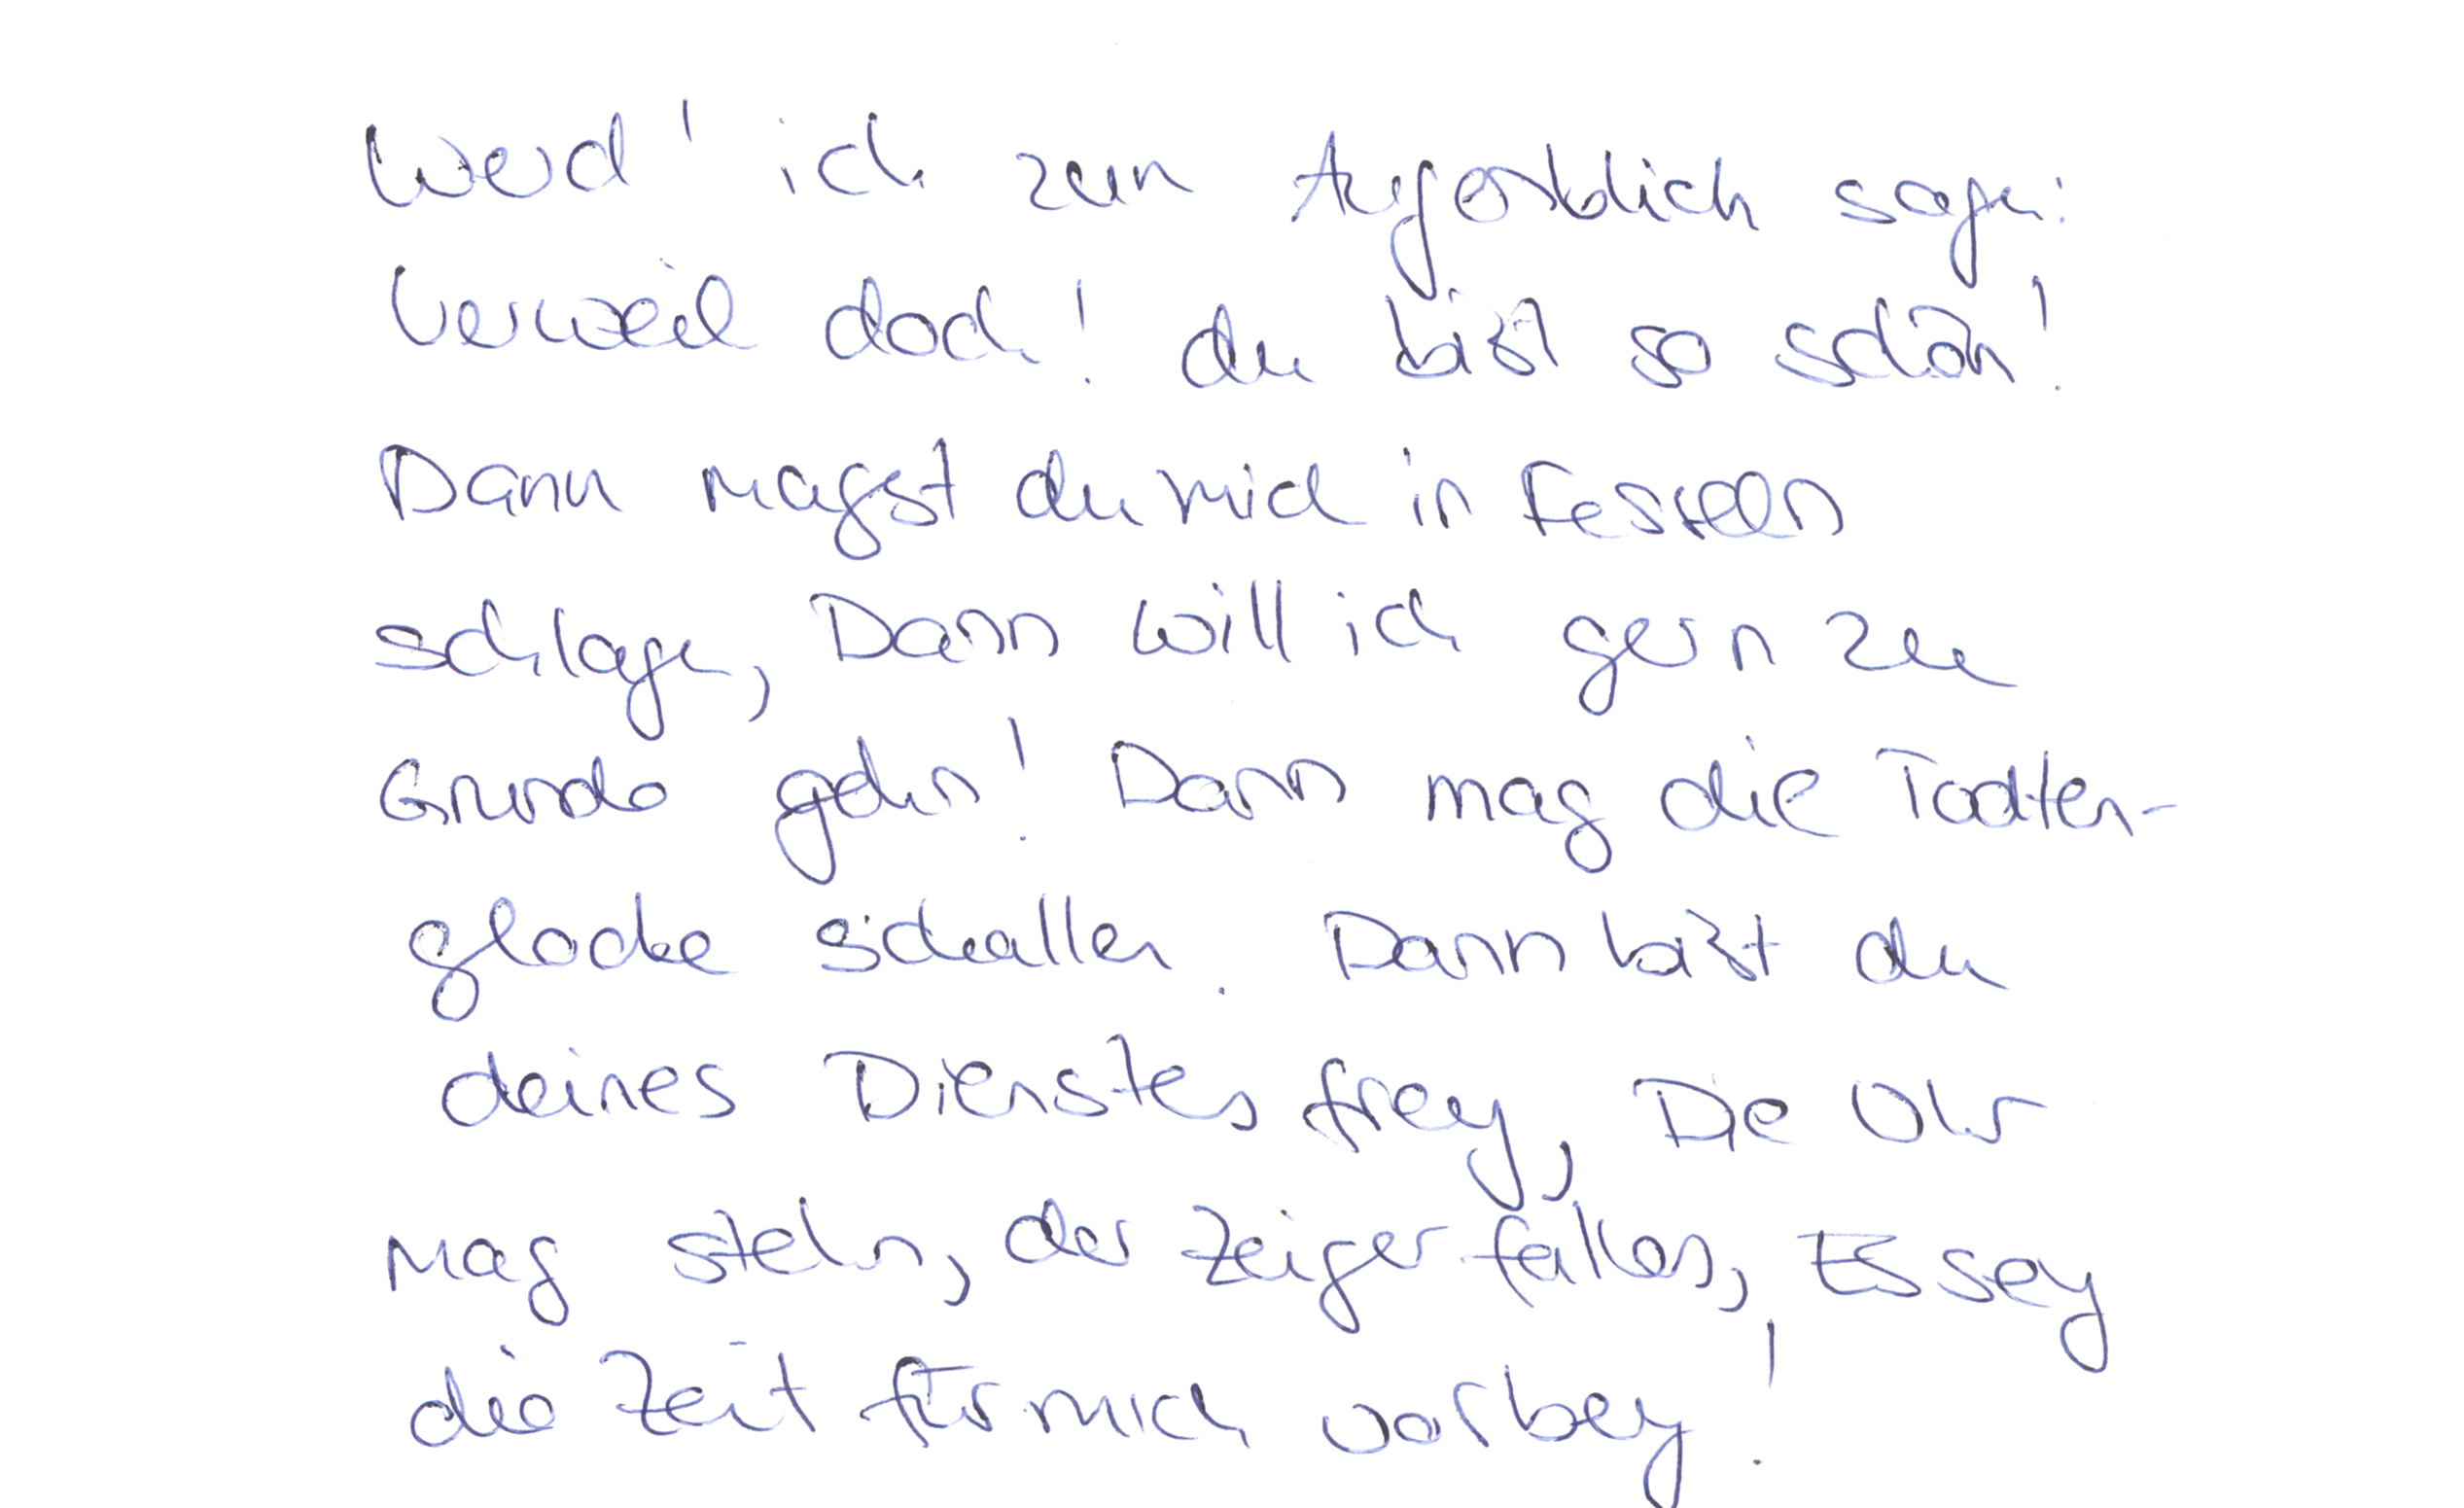 Werd' ich zum Augenblick sagen:
Verweile doch! du bist so schön!
Dann magst du mich in Fesseln
schlagen, Dann will ich gern zu
Grunde gehn! Dann mag die Todten-
glocke schallen. Dann bist du
deines Dienstes frey, Die Uhr
mag stehn, der Zeiger fallen, Es sey
die Zeit für mich vorbey!